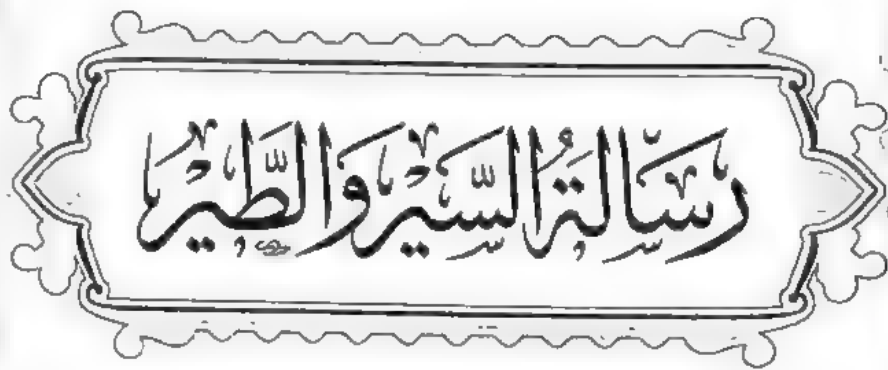 رِسَالَةُ السَّيْرِ وَالطَّيْرِ